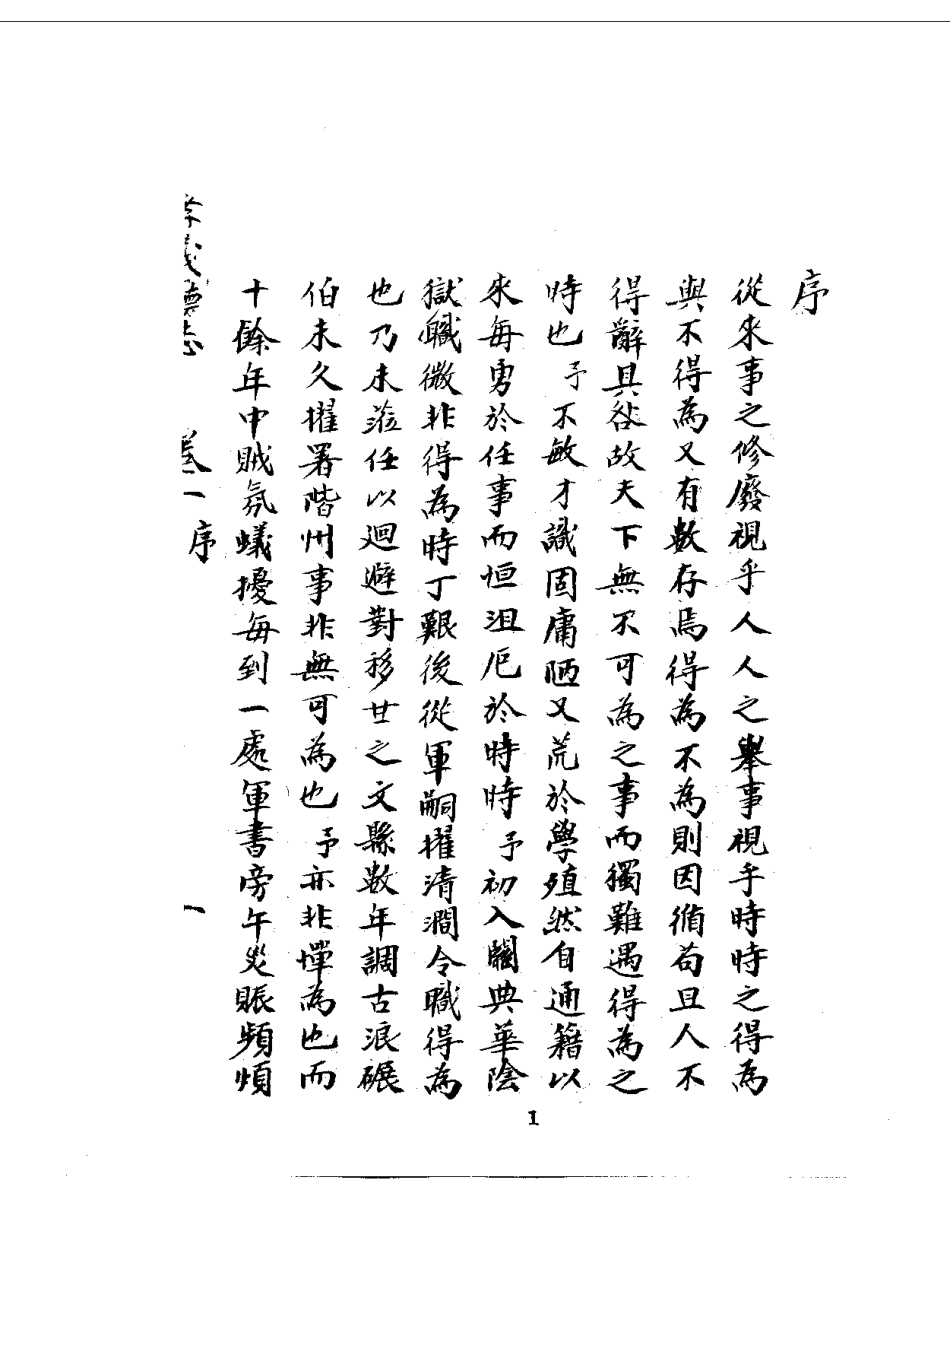 序
從來事之修廢視乎人人之舉事視乎時時之得為
與不得為又有數存焉得為不為則因循苟且人不
得辭其咎故天下無不可為之事而獨難遇得為之
時也予不敏才識固庸陋又荒於學殖然自通籍以
來每勇於任事而恒沮厄於時時予初入關典華陰
獄職微非得為時丁艱後從軍嗣擢清澗令職得為
也乃未蒞任以迴避對移甘之文縣數年調古浪碾
伯未久擢署階州事非無可為也予亦非憚為也而
十餘年中賊氛蟻擾每到一處軍書旁午災賑頻煩
志 卷一 序 一
1